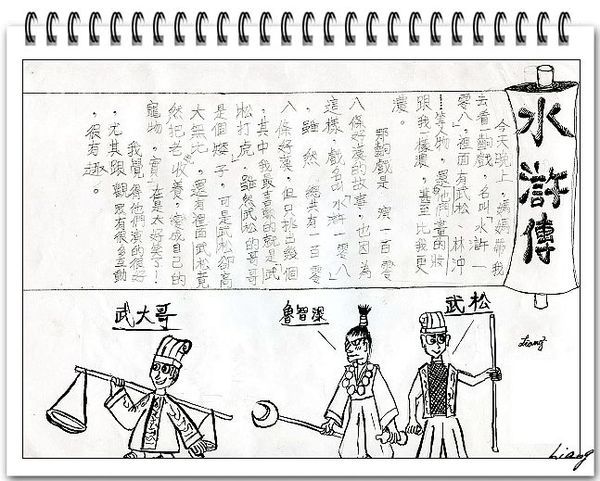 水滸傳
今天晚上，媽媽帶我
去看一齣戲，名叫「水滸一
零八」。裡面有武松、林沖
！等人物，他們畫的妝
跟我一樣濃，甚至比我更
濃。
那齣戲是演一百零
八條好漢的故事，也因為
這樣，戲名叫「水滸一零八」
。雖然，總共有一百零
八條好漢，但只排出幾個
，其中，我最喜歡的就是武
松打虎」，雖然武松的哥哥
是個矮子，可是武松卻高
大無比，還有裡面武松竟
然把老虎收養，變成自己的
寵物，實在是太好笑了！
我覺得他們演的很好
，尤其跟觀眾有很多互動
，很有趣。
武松
魯智深
武大哥
Liang
Liang